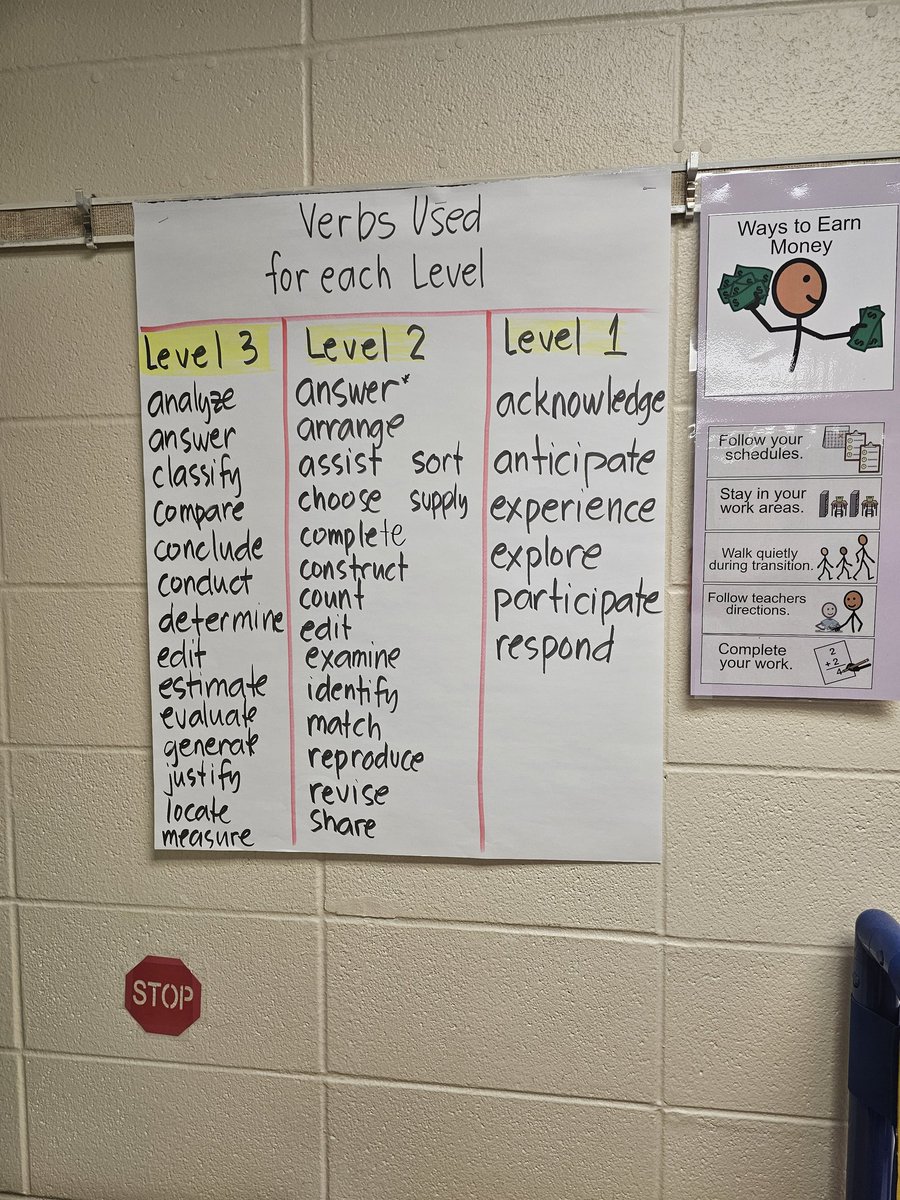 Verbs Used
for each Level
Level 3
analyze
answer
classify
compare
conclude
conduct
determine
edit
estimate
evaluate
generate
justify
locate
measure
Level 2
answer*
arrange
assist sort
choose supply
complete
construct
count
edit
examine
identify
match
reproduce
revise
share
Level 1
acknowledge
anticipate
experience
explore
participate
respond
Ways to Earn
Money
Follow your
schedules.
Stay in your
work areas.
Walk quietly
during transition.
Follow teachers
directions.
Complete
your work.
2
+ 2
4
STOP